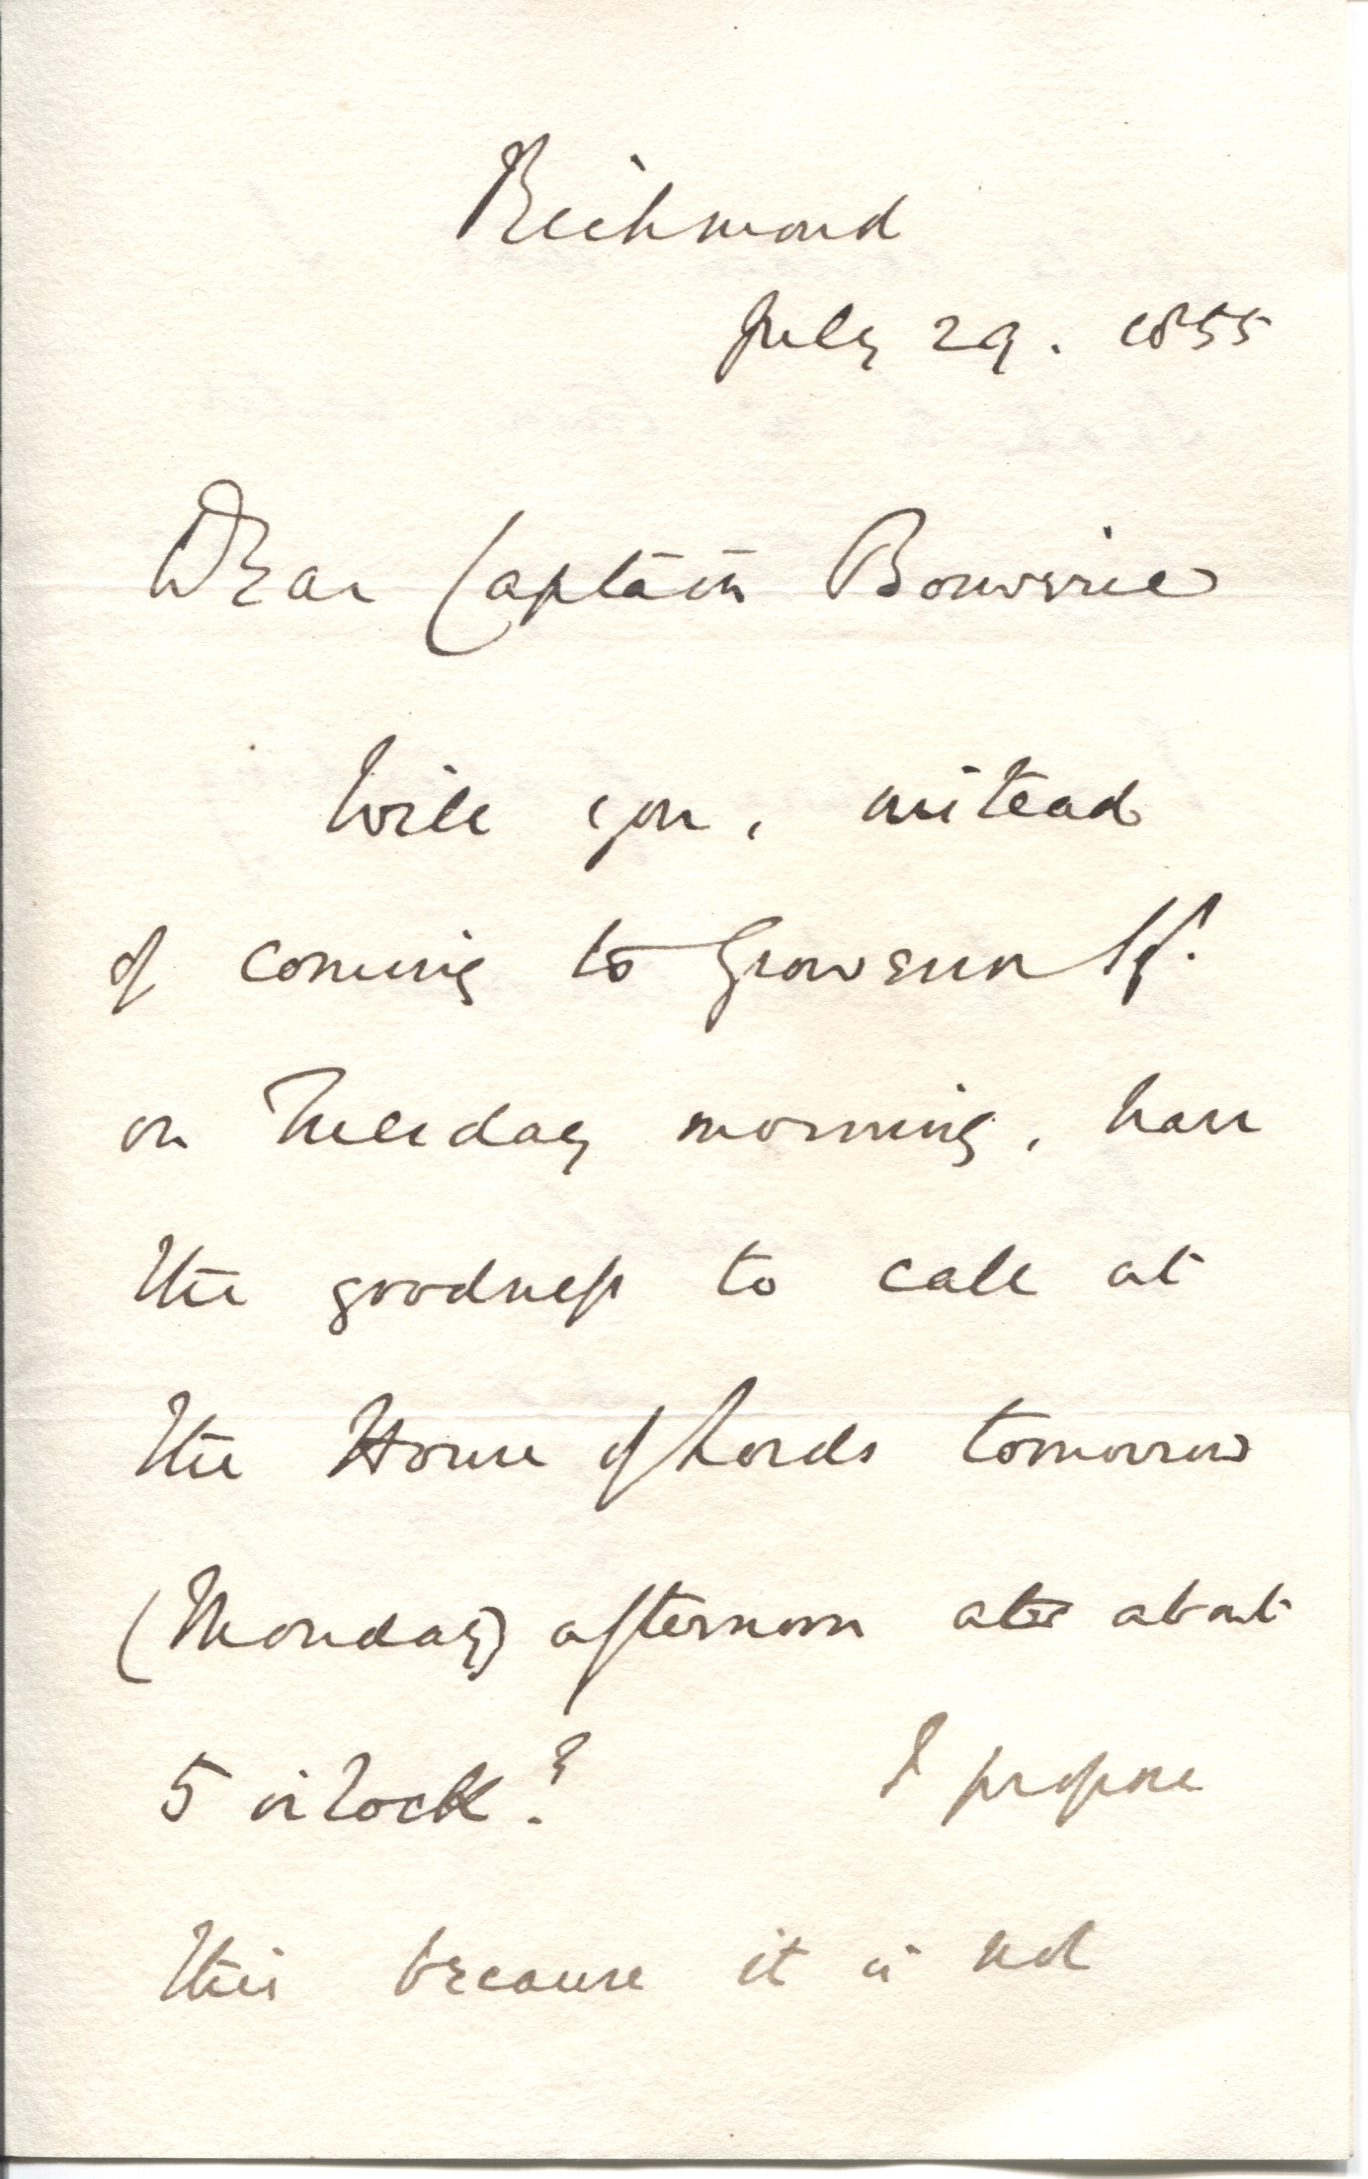 Richmond
July 29. 1855
Dear Captain Bouverie
Will you, instead
of coming to Grosvenor Sq.
on Tuesday morning, have
the goodness to call at
the House of Lords tomorrow
(Monday) afternoon at about
5 o'clock? I propose
this because it is not